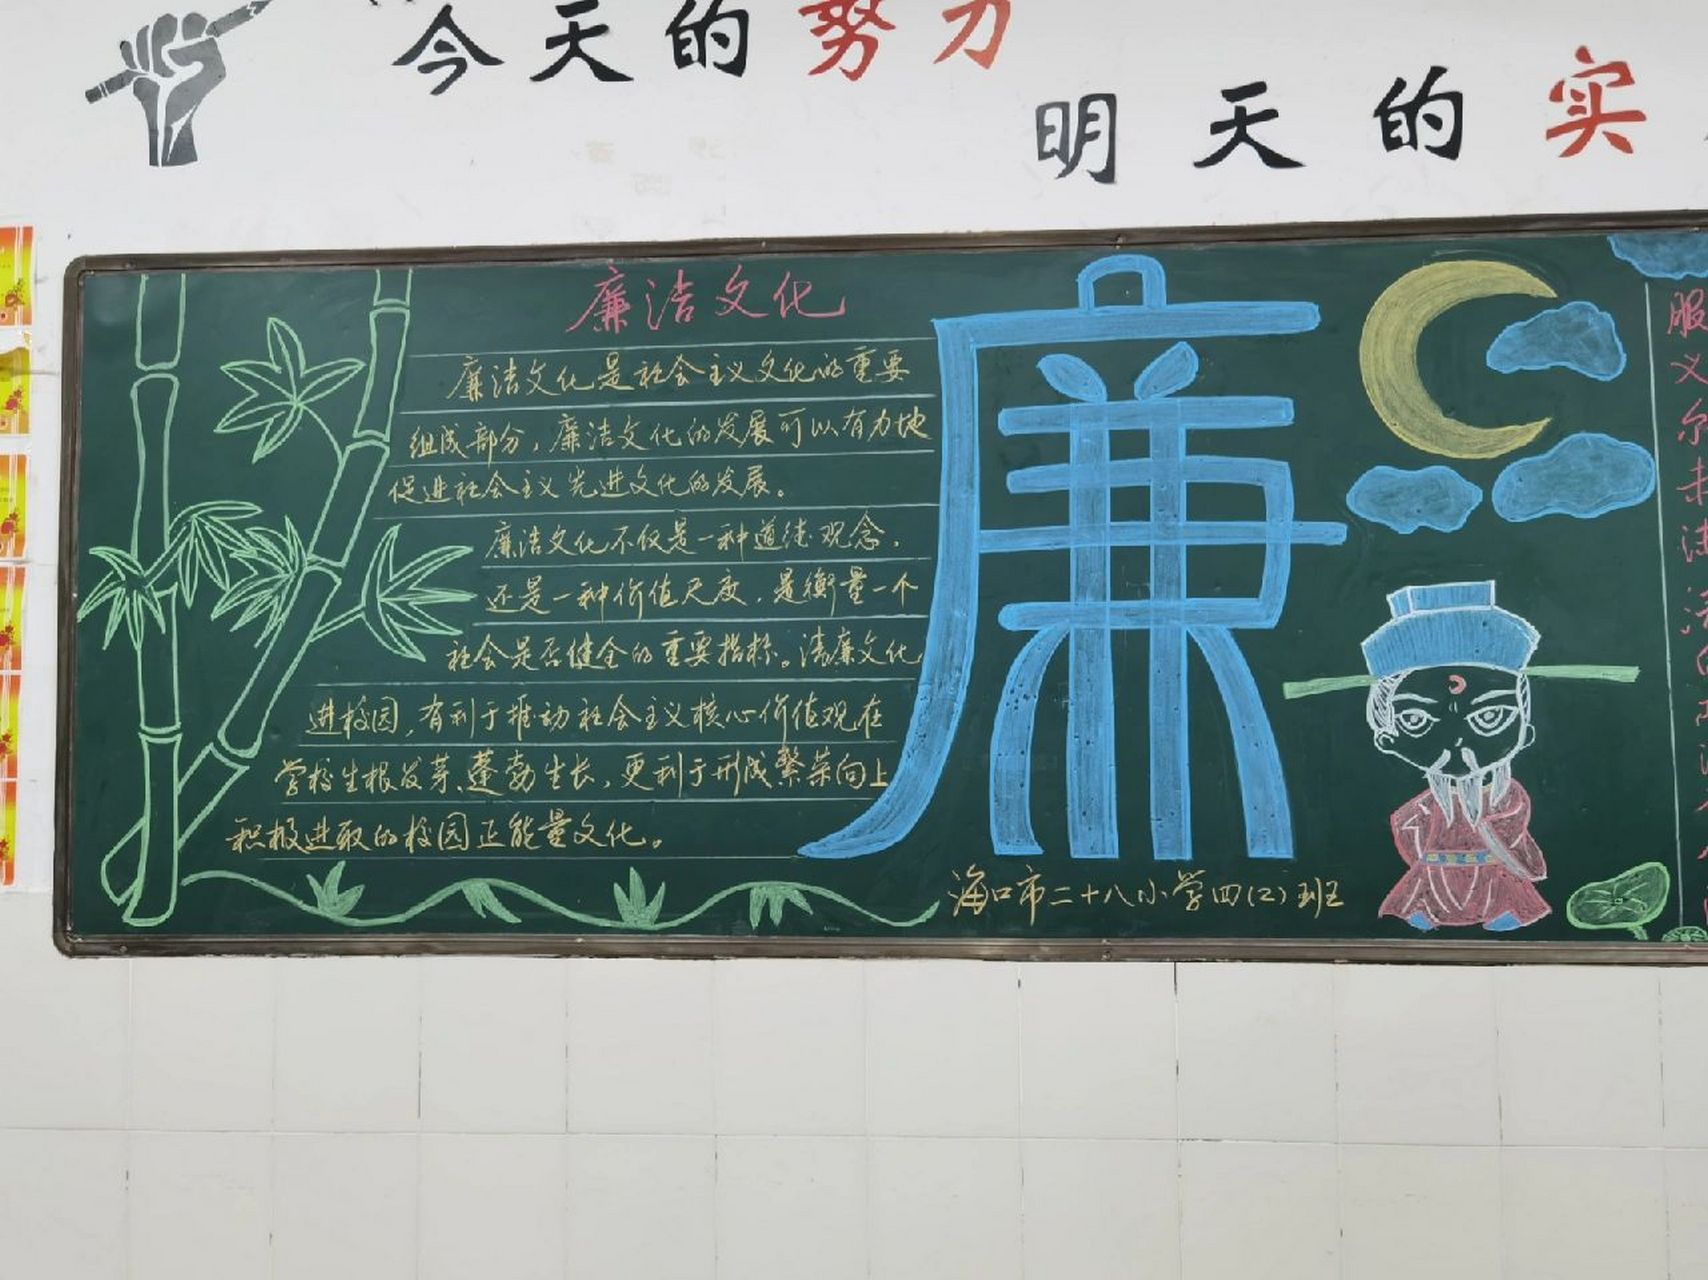 今天的努力
明天的实
廉洁文化
廉洁文化是社会主义文化的重要
组成部分，廉洁文化的发展可以有力地
促进社会主义先进文化的发展。
廉洁文化不仅是一种道德观念，
还是一种价值尺度，是衡量一个
社会是否健全的重要指标。清廉文化
进校园，有利于推动社会主义核心价值观在
学校生根发芽、蓬勃生长，更利于形成繁荣向上
积极进取的校园正能量文化。
廉
海口市二十八小学四(2)班
服
义